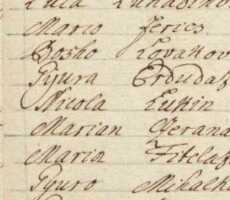 Luca
Marco Jeries
Bosho Lovakov
Gyura Erdudas
Nicola Lukin
Marian Gerana
Maria Fitelas
Gyuro Mihalk